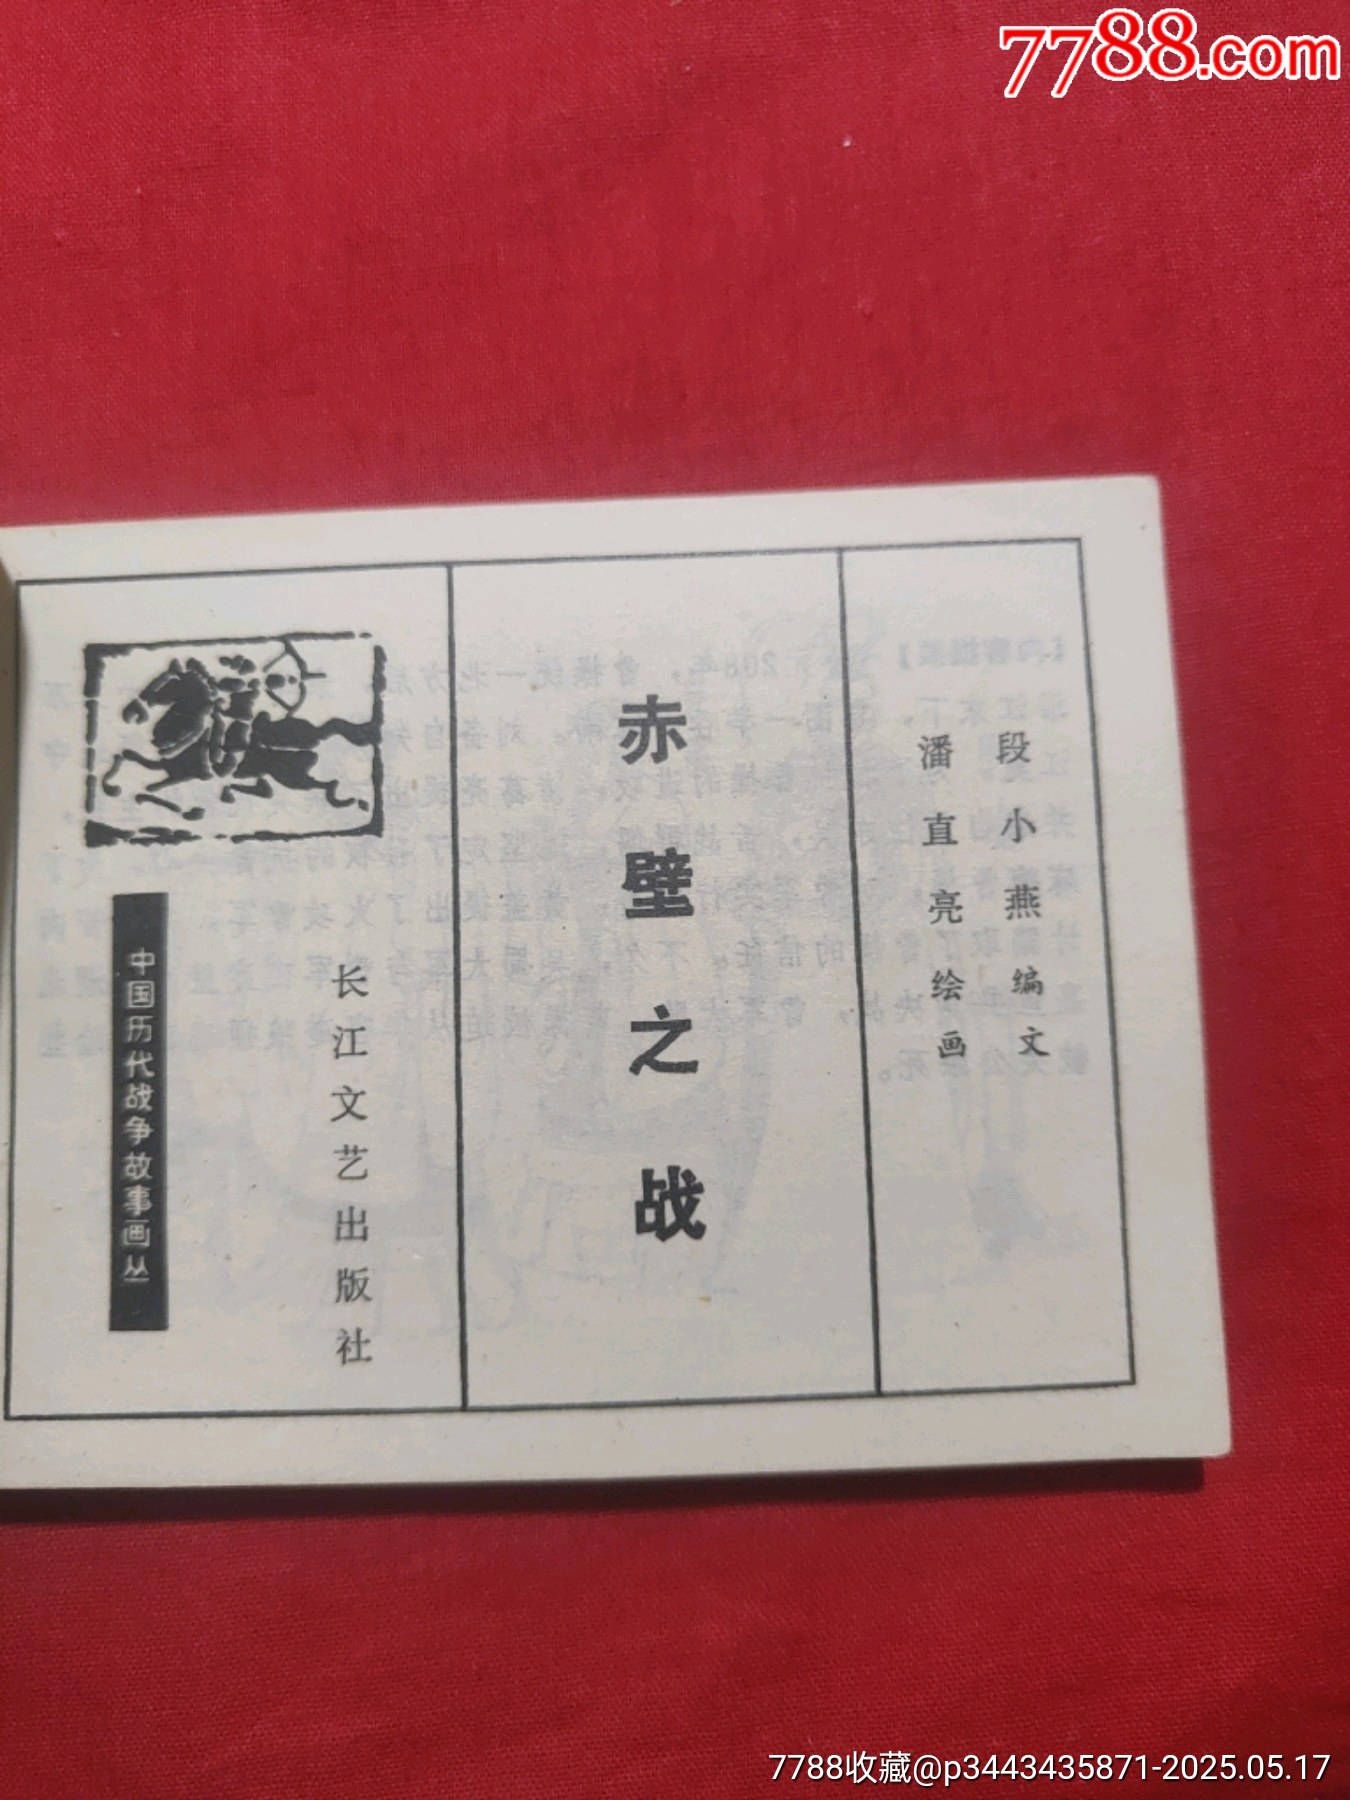 7788.com
段小燕编文
潘直亮绘画
赤壁之战
长江文艺出版社
中国历代战争故事画丛
7788收藏@p3443435871-2025.05.17